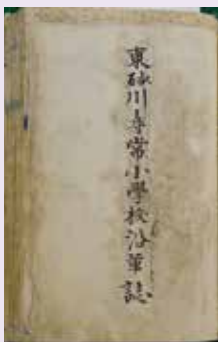 東砂川尋常小學校沿革誌